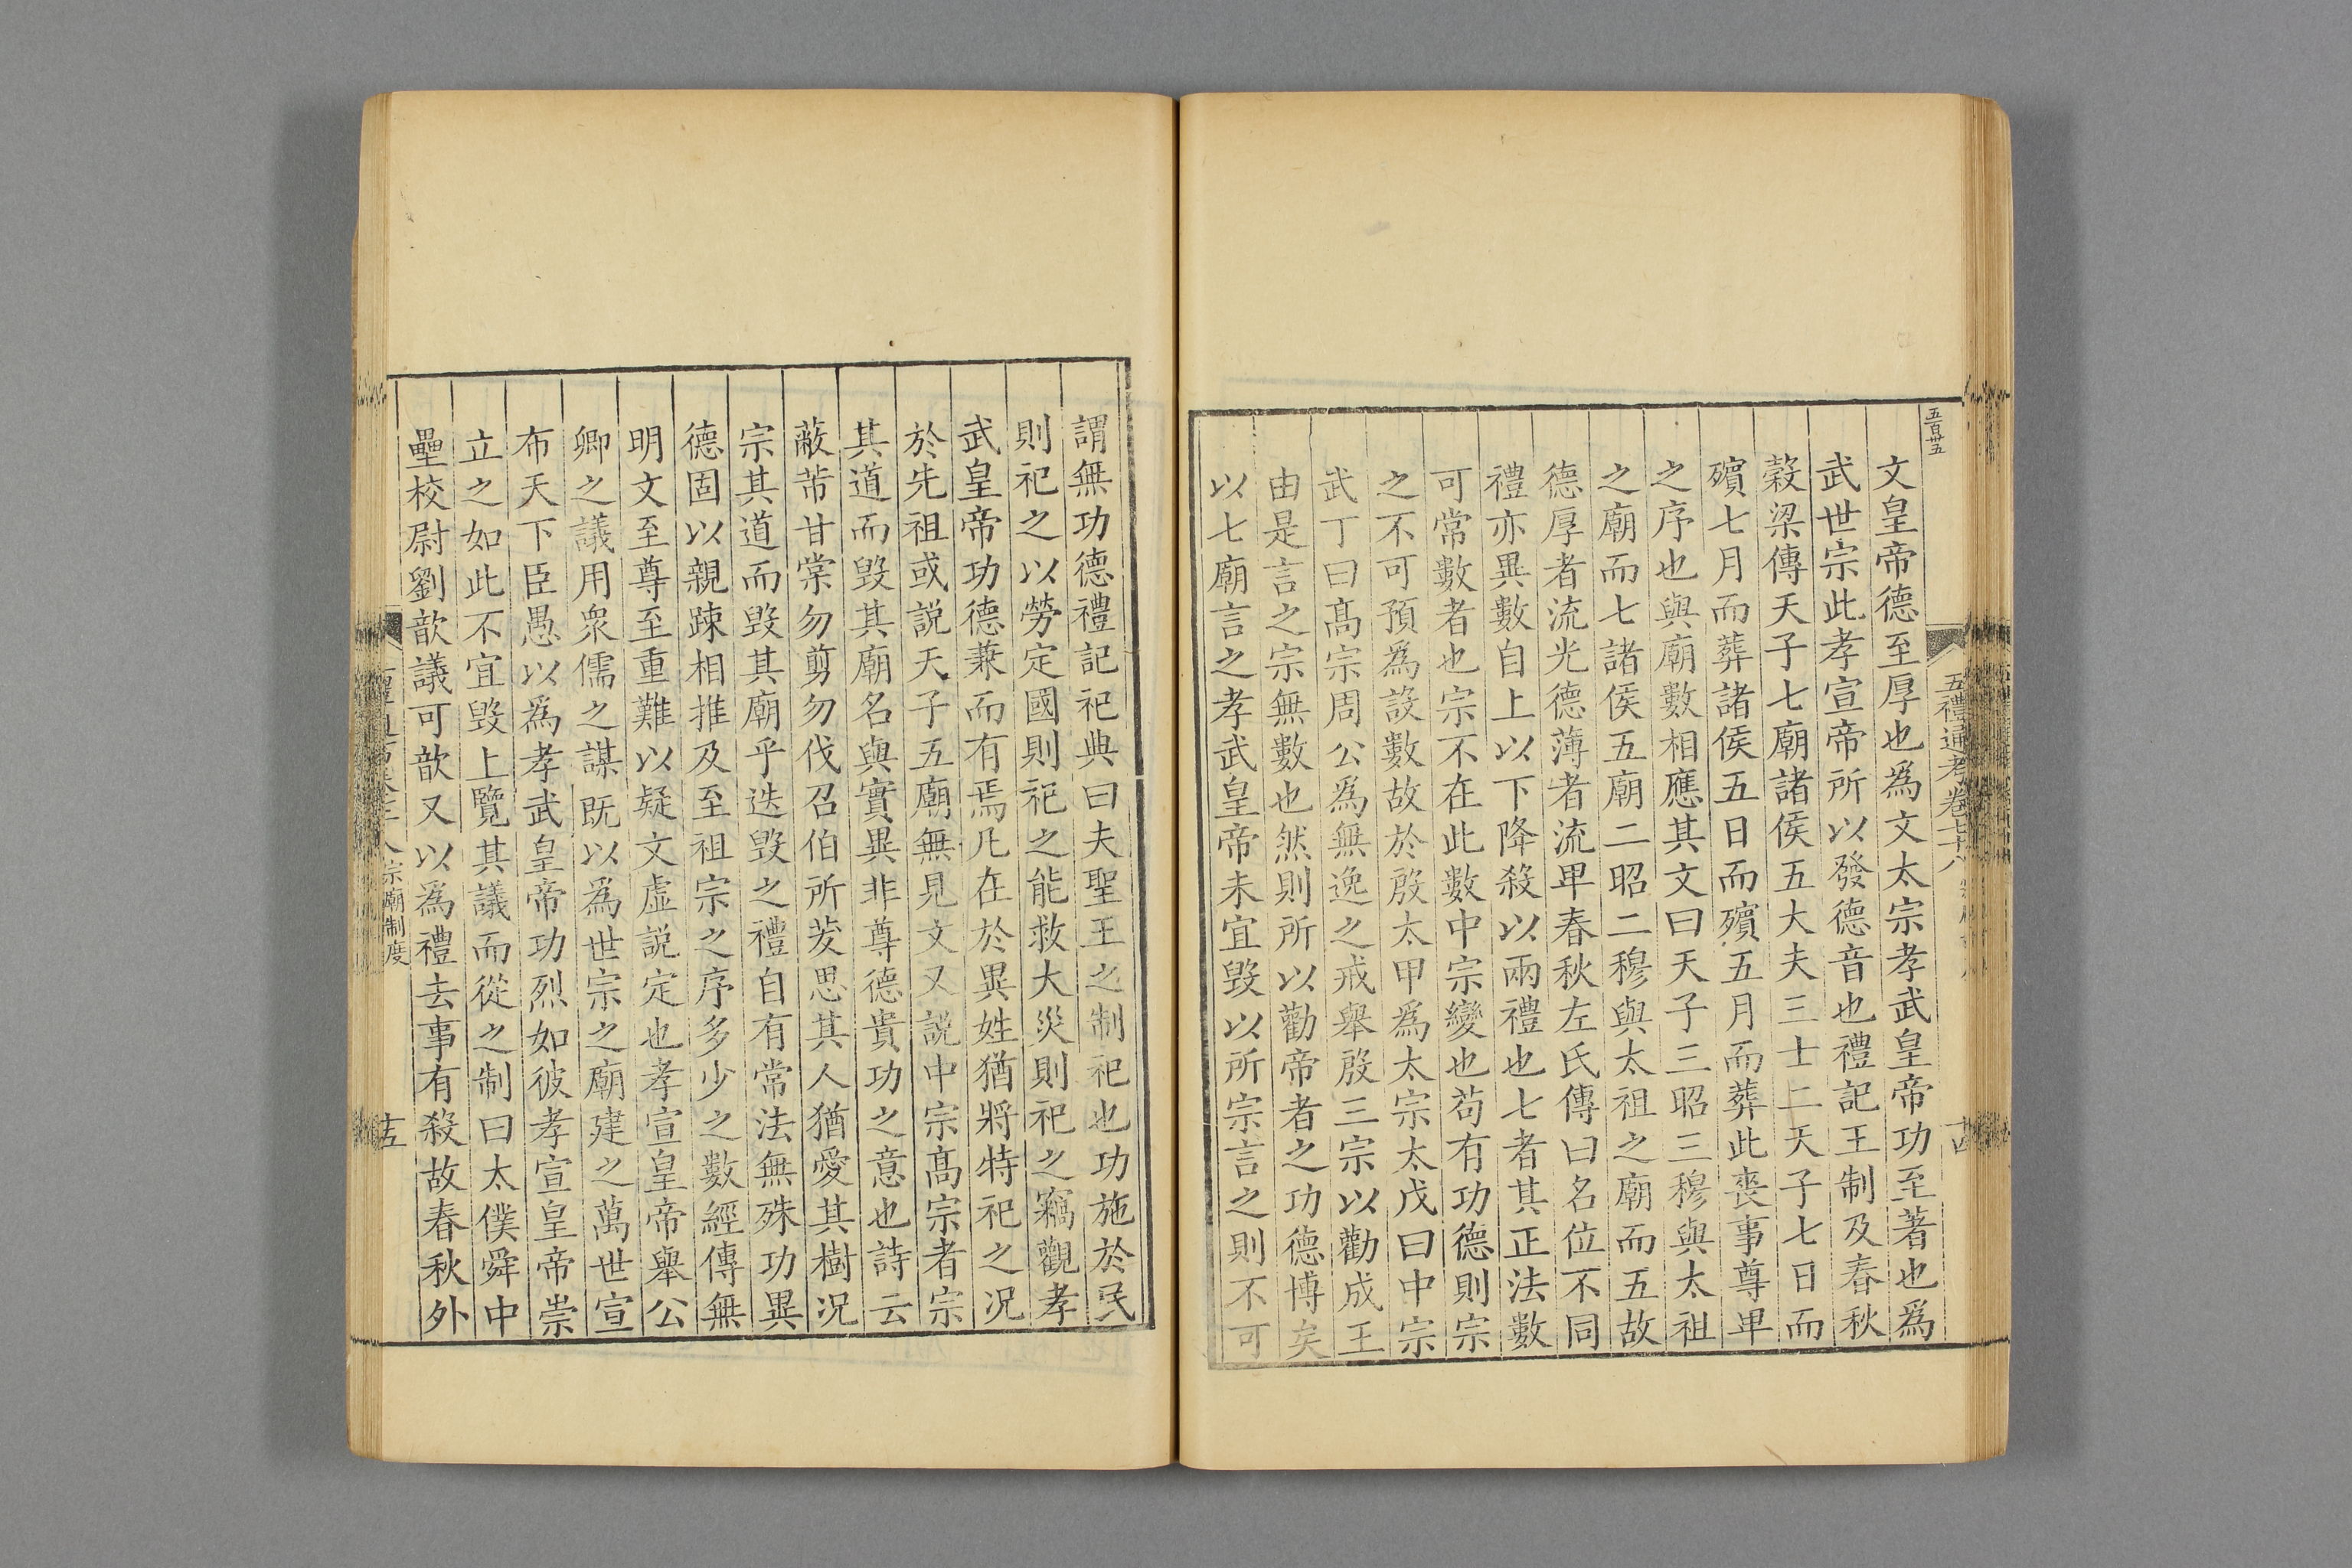 五百卅五
五禮通考卷七十八
文皇帝德至厚也爲文太宗孝武皇帝功至著也爲
武世宗此孝宣帝所以發德音也禮記王制及春秋
穀梁傳天子七廟諸侯五大夫三士二天子七日而
殯七月而葬諸侯五日而殯五月而葬此喪事尊卑
之序也與廟數相應其文曰天子三昭三穆與太祖
之廟而七諸侯五廟二昭二穆與太祖之廟而五故
德厚者流光德薄者流卑春秋左氏傳曰名位不同
禮亦異數自上以下降殺以兩禮也七者其正法數
可常數者也宗不在此數中宗變也苟有功德則宗
之不可預爲設數故於殷太甲爲太宗太戊曰中宗
武丁曰髙宗周公爲無逸之戒舉殷三宗以勸成王
由是言之宗無數也然則所以勸帝者之功德博矣
以七廟言之孝武皇帝未宜毀以所宗言之則不可
謂無功德禮記祀典曰夫聖王之制祀也功施於民
則祀之以勞定國則祀之能救大災則祀之竊觀孝
武皇帝功德兼而有焉凡在於異姓猶將特祀之况
於先祖或説天子五廟無見文又説中宗髙宗者宗
其道而毀其廟名與實異非尊德貴功之意也詩云
蔽芾甘棠勿剪勿伐召伯所茇思其人猶愛其樹况
宗其道而毀其廟乎迭毀之禮自有常法無殊功異
德固以親踈相推及至祖宗之序多少之數經傳無
明文至尊至重難以疑文虛説定也孝宣皇帝舉公
卿之議用衆儒之謀既以爲世宗之廟建之萬世宣
布天下臣愚以爲孝武皇帝功烈如彼孝宣皇帝崇
立之如此不宜毀上覽其議而從之制曰太僕舜中
壘校尉劉歆議可歆又以爲禮去事有殺故春秋外
宗廟制度
十五